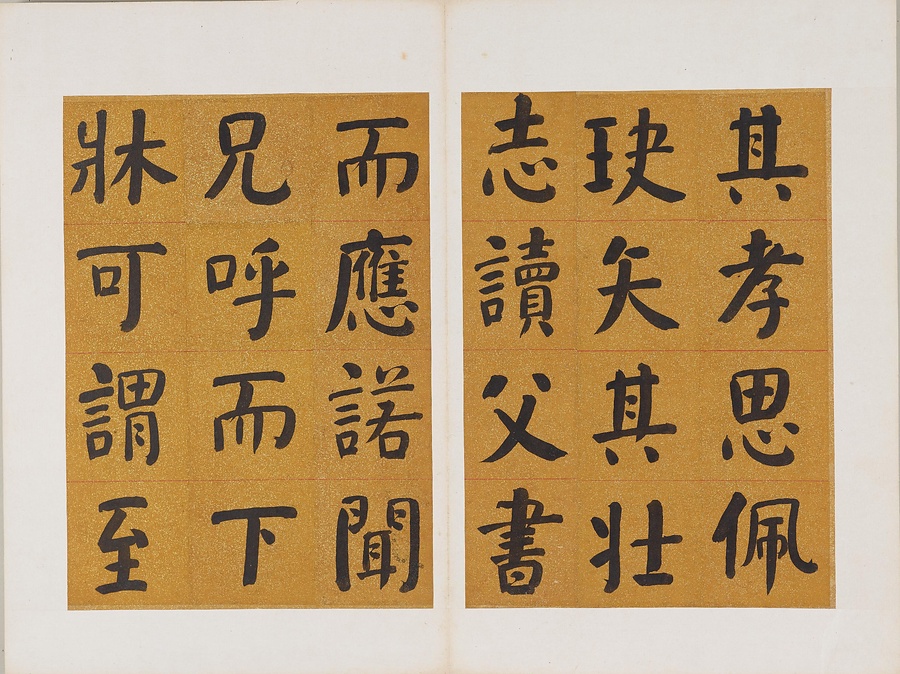 其孝思佩
玦矢其壯
志讀父書
而應諾聞
兄呼而下
牀可謂至